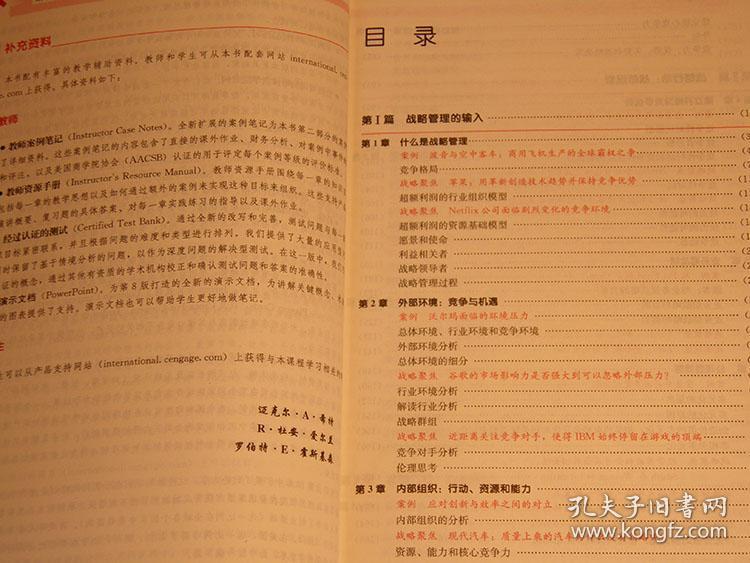 补充资料
本书配有丰富的教学辅助资料。教师和学生可从本书配套网站 international.
e.com上获得。具体资料如下：
教师
• 教师案例笔记（Instructor Case Notes）。全新扩展的案例笔记为本书第二部分的案例
了详细资料。这些案例笔记的内容包含了直接的课外作业、财务分析、对案例中事件
和评注，以及美国商学院协会（AACSB）认证的用于评定每个案例等级的评分标准。
教师资源手册（Instructor's Resource Manual）。教师资源手册围绕每一章的知识
包括每一章的教学思想以及如何通过额外的案例来实现这种目标来组织。这些支持
演讲概要、复习题的具体答案、对每一章实践练习的指导以及课外作业。
经过认证的测试（Certified Test Bank）。通过全新的改写和完善，测试问题与每一
目标紧密联系，并且根据问题的难度和类型进行排列。我们提供了大量的应用
时保留了基于情境分析的问题，以作为深度问题的解决型测试。在这一版中，我们
证的概念，通过其他有资质的学术机构校正和确认测试问题和答案的准确性。
演示文档（PowerPoint）。为第8版打造的全新的演示文档，为讲解关键概念、
的图表提供了支持。演示文档也可以帮助学生更好地做笔记。
生
生可以从产品支持网站（international.cengage.com）上获得与本课程学习相关的
迈克尔·A·希特
R·杜安·爱尔兰
罗伯特·E·霍斯基森
目 录
第Ⅰ篇 战略管理的输入
第1章 什么是战略管理
案例 波音与空中客车：商用飞机生产的全球霸权之争
竞争格局
战略聚焦 苹果：用革新创造技术趋势并保持竞争优势
超额利润的行业组织模型
战略聚焦 Netflix公司面临剧烈变化的竞争环境
超额利润的资源基础模型
愿景和使命
利益相关者
战略领导者
战略管理过程
第2章 外部环境：竞争与机遇
案例 沃尔玛面临的环境压力
总体环境、行业环境和竞争环境
外部环境分析
总体环境的细分
战略聚焦 谷歌的市场影响力是否强大到可以忽略外部压力？
行业环境分析
解读行业分析
战略群组
战略聚焦 近距离关注竞争对手，使得IBM始终停留在游戏的顶端
竞争对手分析
伦理思考
第3章 内部组织：行动、资源和能力
案例 应对创新与效率之间的对立
内部组织的分析
战略聚焦 现代汽车：质量上乘的汽车
资源、能力和核心竞争力
孔夫子旧书网
www.kongfz.com